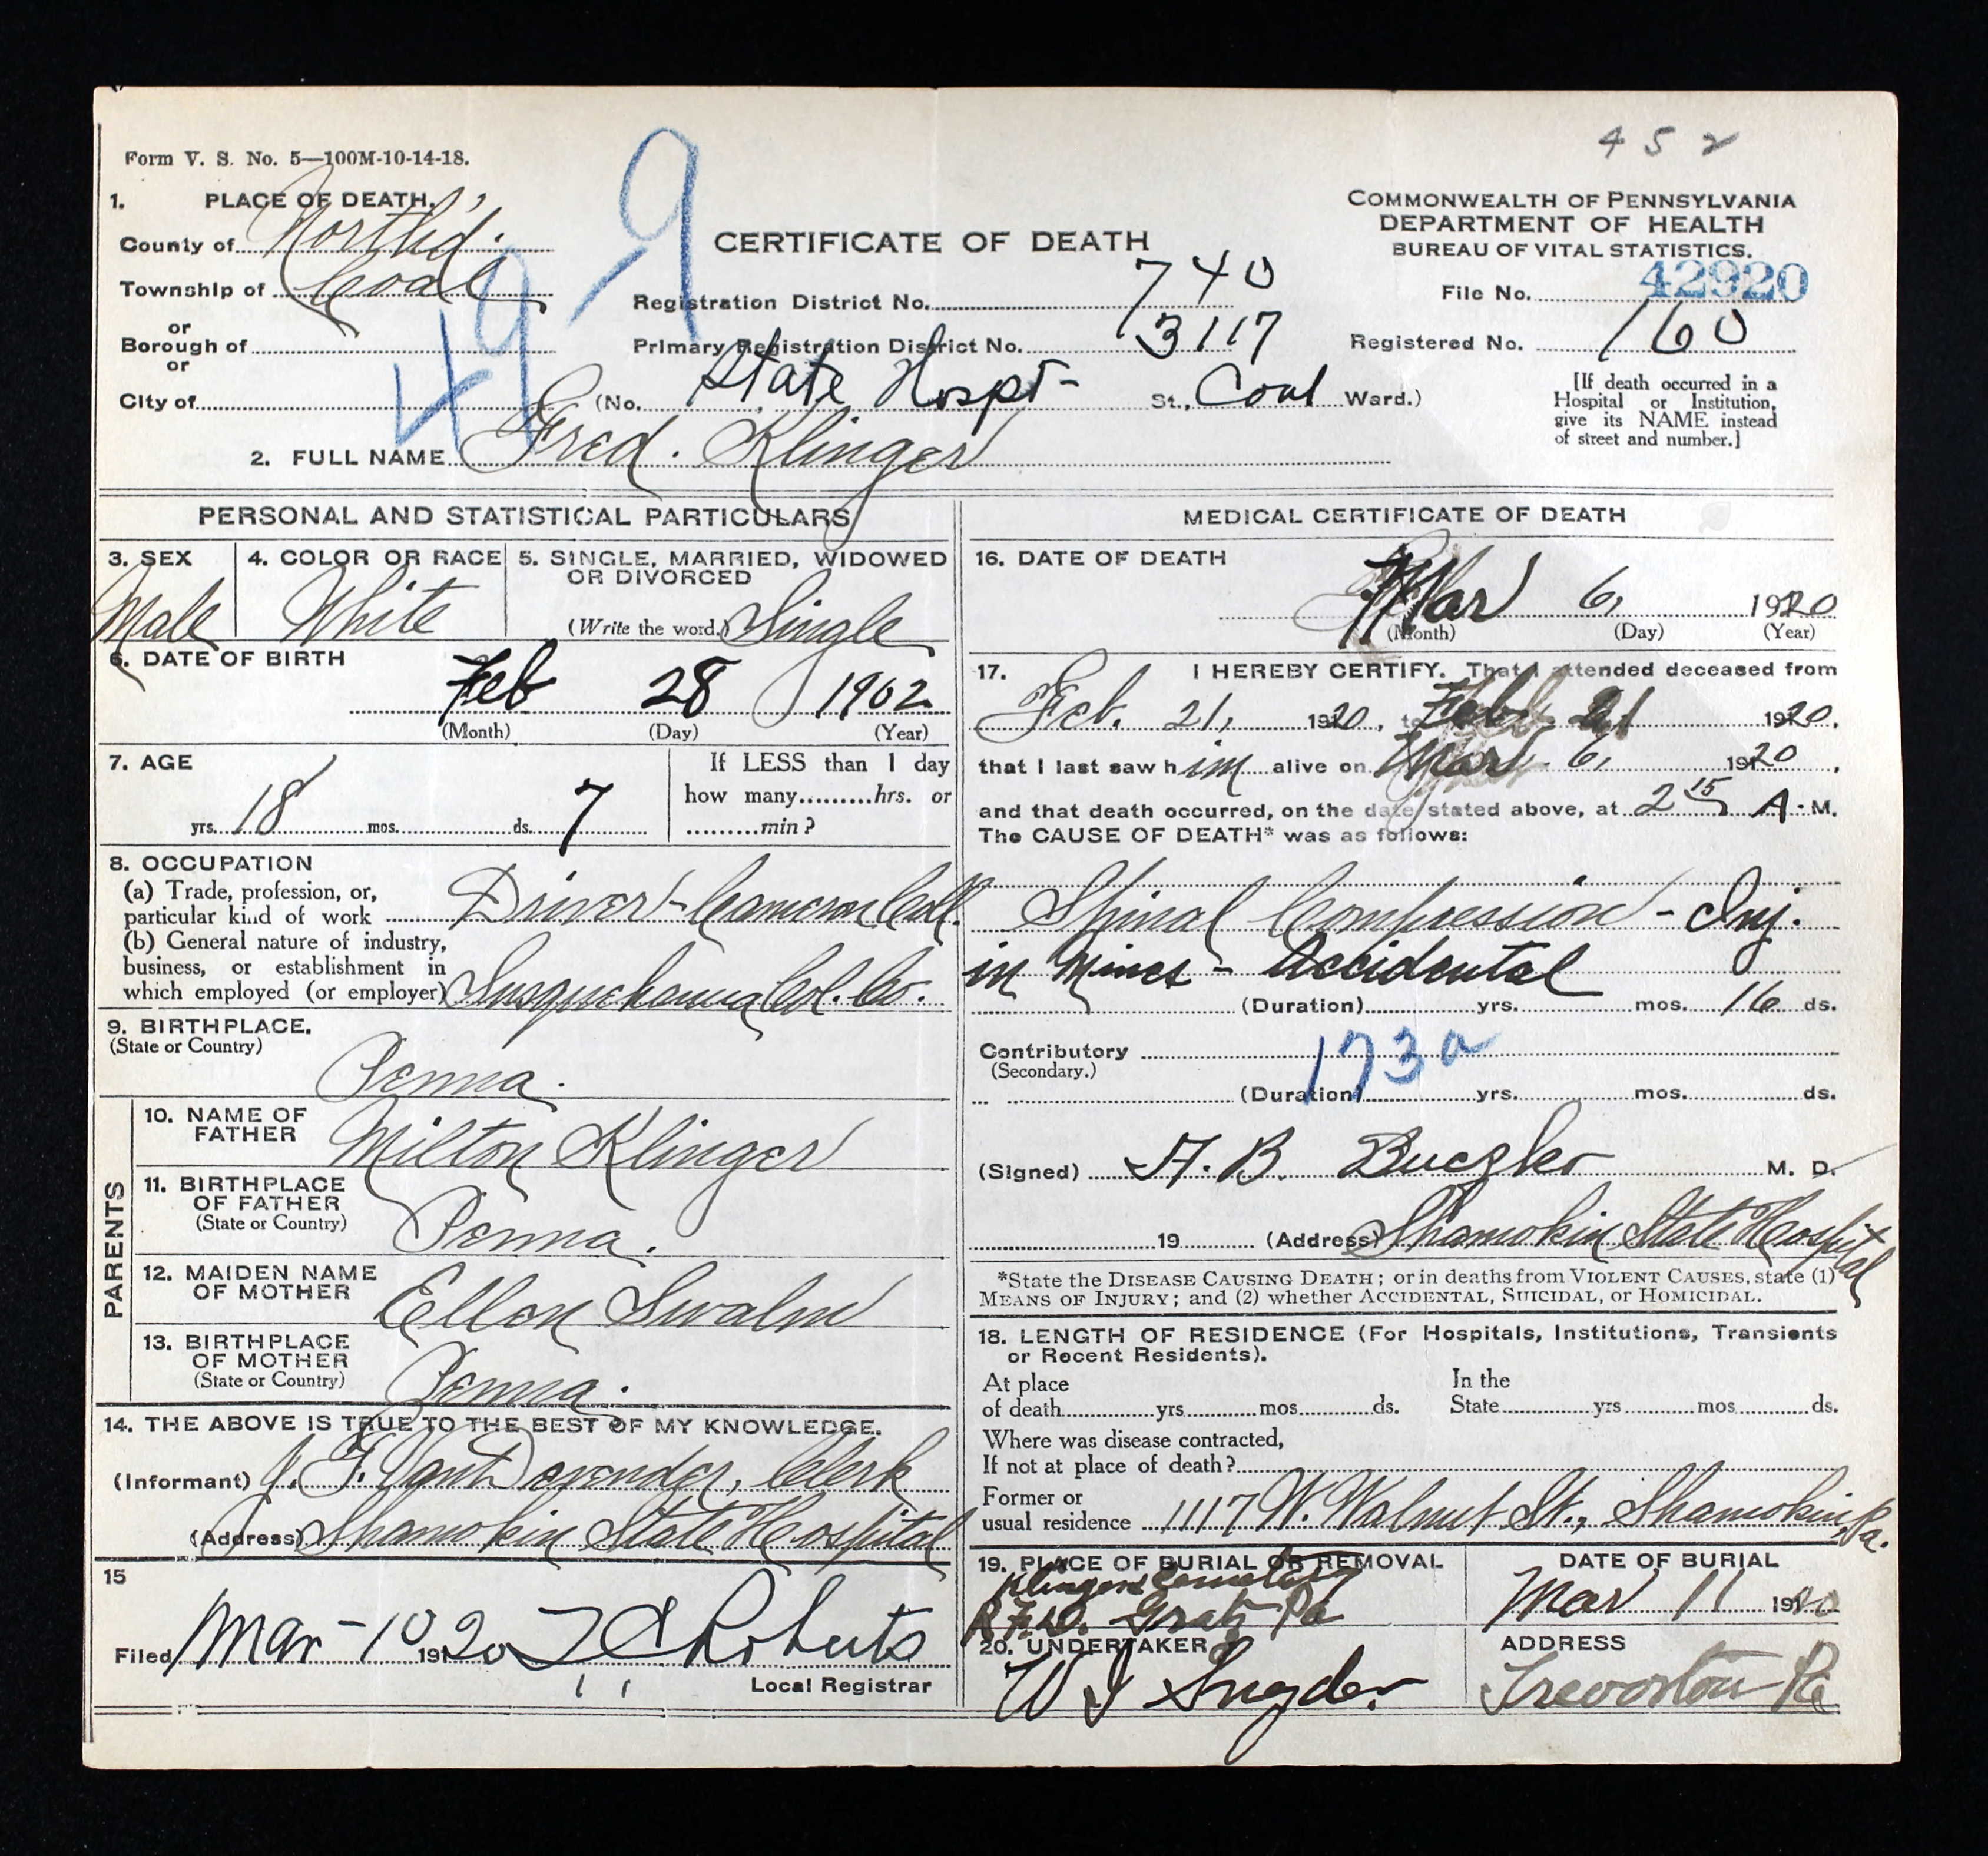 452
Form V. S. No. 5—100M-10-14-18.
1. PLACE OF DEATH.
County of North'd.
Township of Coal
or
Borough of
or
City of
49-9
CERTIFICATE OF DEATH
Registration District No. 740
Primary Registration District No. 3117
(No. State Hospt- St., Coal Ward.)
COMMONWEALTH OF PENNSYLVANIA
DEPARTMENT OF HEALTH
BUREAU OF VITAL STATISTICS.
File No. 42920
Registered No. 160
[If death occurred in a
Hospital or Institution,
give its NAME instead
of street and number.]
2. FULL NAME Fred. Klinger
PERSONAL AND STATISTICAL PARTICULARS
3. SEX
Male
4. COLOR OR RACE
White
5. SINGLE, MARRIED, WIDOWED
OR DIVORCED
(Write the word.) Single
6. DATE OF BIRTH
Feb 28 1902
(Month) (Day) (Year)
7. AGE
yrs. 18 mos. ds. 7
If LESS than 1 day
how many.........hrs. or
.........min?
8. OCCUPATION
(a) Trade, profession, or,
particular kind of work Driver-Cameron Coll.
(b) General nature of industry,
business, or establishment in
which employed (or employer) Susquehanna Col. Co.
9. BIRTHPLACE.
(State or Country)
Penna.
PARENTS
10. NAME OF
FATHER Milton Klinger
11. BIRTHPLACE
OF FATHER
(State or Country) Penna.
12. MAIDEN NAME
OF MOTHER Ellen Swalm
13. BIRTHPLACE
OF MOTHER
(State or Country) Penna.
14. THE ABOVE IS TRUE TO THE BEST OF MY KNOWLEDGE.
(Informant) J. F. VantDevender, Clerk
(Address) Shamokin State Hospital
15
Filed Mar-10 1920 Roberts
Local Registrar
MEDICAL CERTIFICATE OF DEATH
16. DATE OF DEATH
Mar 6, 1920
(Month) (Day) (Year)
17. I HEREBY CERTIFY. That I attended deceased from
Feb. 21, 1920, to Feb 21 1920,
that I last saw him alive on Mar. 6, 1920,
and that death occurred, on the date stated above, at 2 15 A. M.
The CAUSE OF DEATH* was as follows:
Spinal Compression - Inj.
in Mines - Accidental
(Duration) yrs. mos. 16 ds.
Contributory 173a
(Secondary.)
(Duration) yrs. mos. ds.
(Signed) H. B. Buczko M. D.
19 (Address) Shamokin State Hospital
*State the DISEASE CAUSING DEATH; or in deaths from VIOLENT CAUSES, state (1)
MEANS OF INJURY; and (2) whether ACCIDENTAL, SUICIDAL, or HOMICIDAL.
18. LENGTH OF RESIDENCE (For Hospitals, Institutions, Transients
or Recent Residents).
At place
of death yrs mos ds.
In the
State yrs mos ds.
Where was disease contracted,
If not at place of death?
Former or
usual residence 1117 W. Walnut St., Shamokin, Pa.
19. PLACE OF BURIAL OR REMOVAL
Klingers Cemetery
R.F.D. Gratz Pa
DATE OF BURIAL
Mar 11 1920
20. UNDERTAKER
W I Snyder
ADDRESS
Trevorton Pa